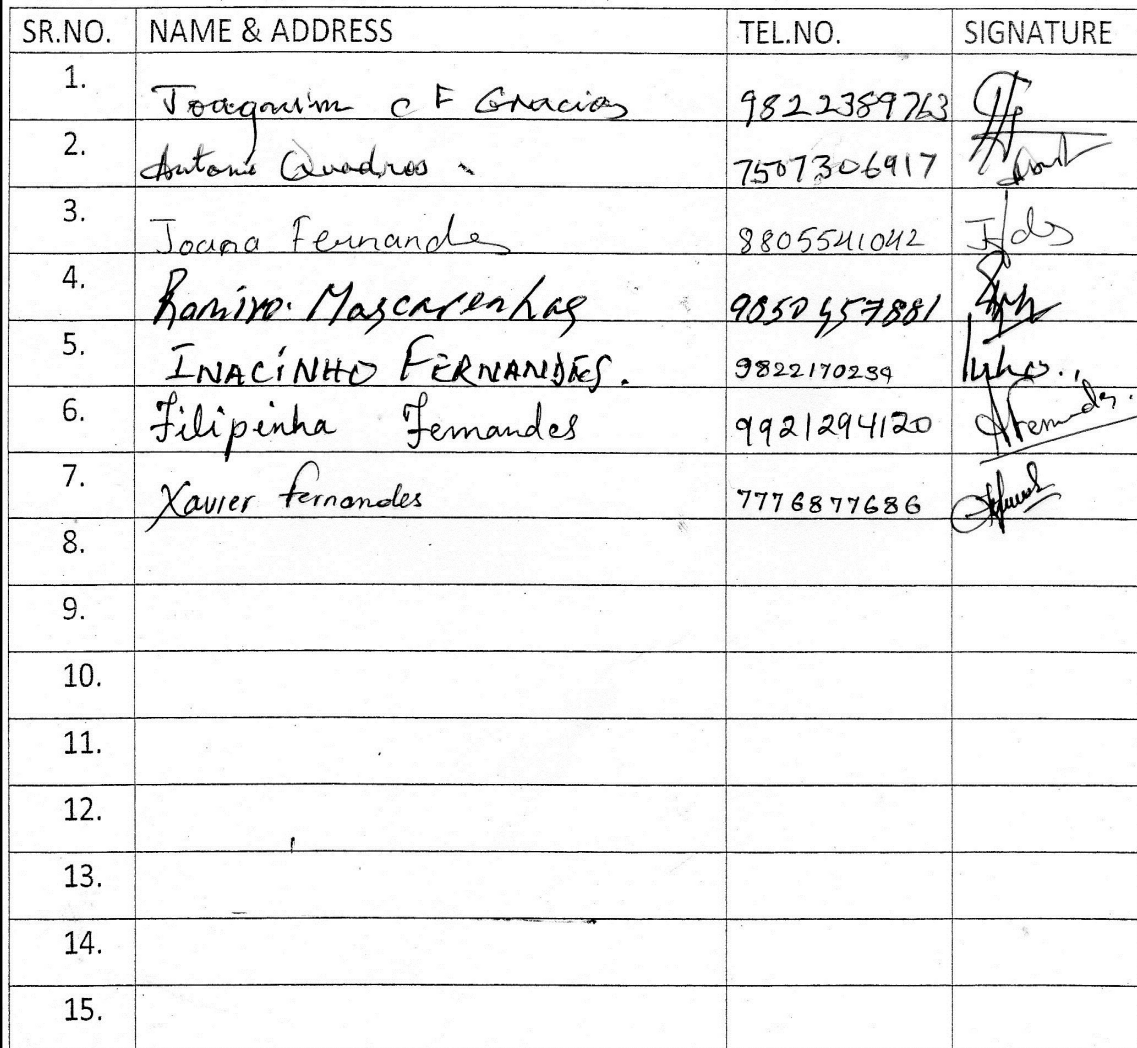 SR.NO. NAME & ADDRESS TEL.NO. SIGNATURE
1. Joaquim C F Gracias 9822389763
2. Antonio Quadros. 7507306917
3. Joana Fernandes 8805541042
4. Ramiro. Mascarenhas 9850457881
5. INACINHO FERNANDES. 9822170234
6. Filipinha Fernandes 9921294120
7. Xavier Fernandes 7776877686
8.
9.
10.
11.
12.
13.
14.
15.